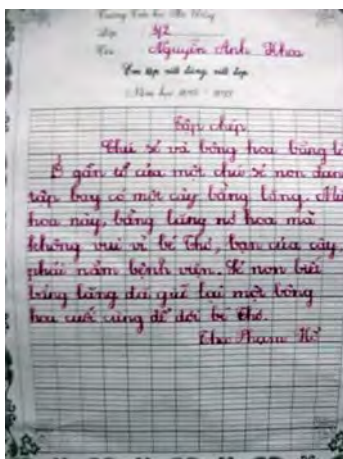 Trường Tiểu học
Lớp 3/2
Tên Nguyễn Anh Khoa
Em tập viết đúng, viết đẹp
Năm học
Tập chép
Chú sẻ và bông hoa bằng l
Ở gần tổ của một chú sẻ non đan
tập bay có một cây bằng lăng. Mù
hoa này, bằng lăng nở hoa mà
không vui vì bé Thơ, bạn của cây,
phải nằm bệnh viện. Sẻ non biế
bằng lăng đã giữ lại một bông
hoa cuối cùng để đợi bé Thơ.
Theo Phạm Hổ